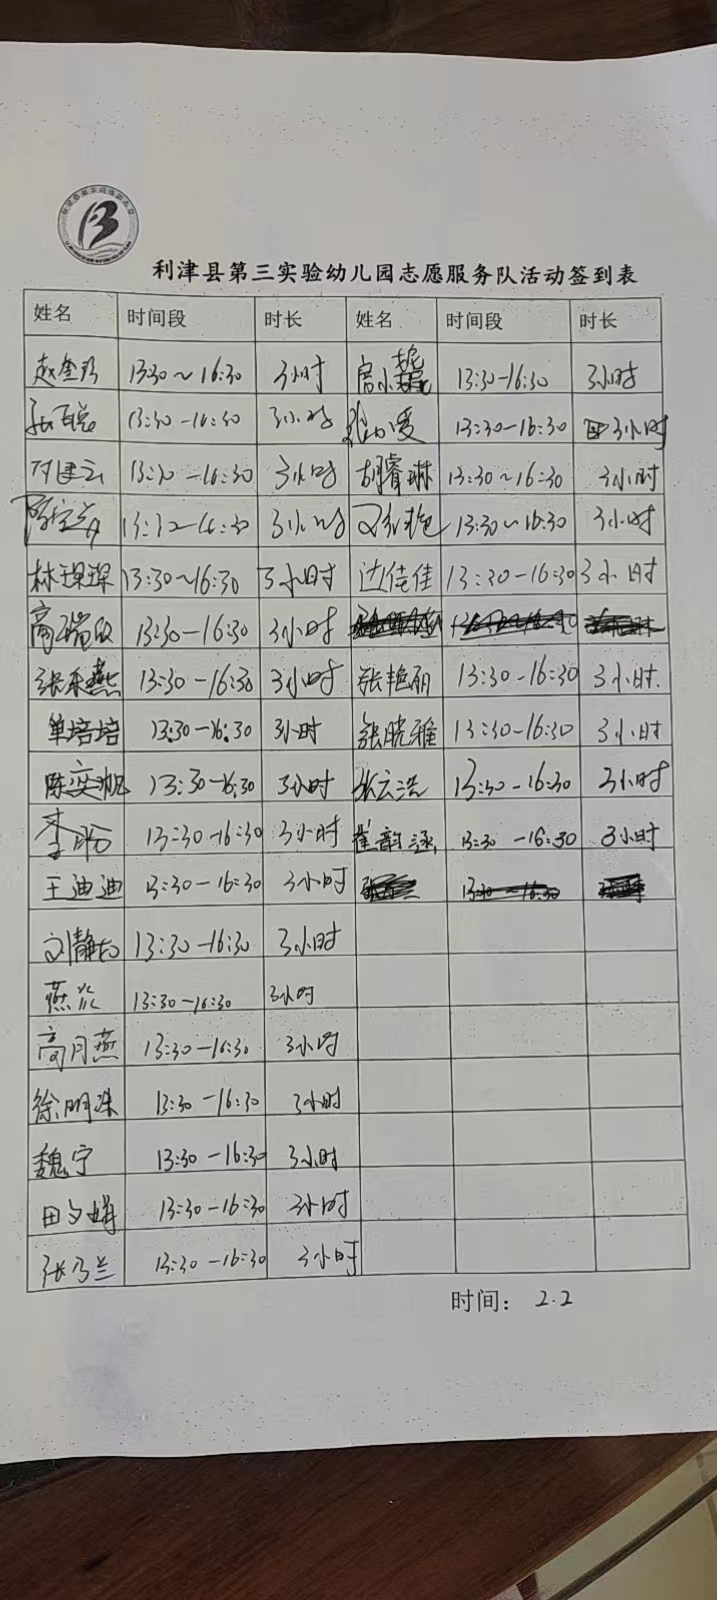 利津县第三实验幼儿园志愿服务队活动签到表
姓名 时间段 时长 姓名 时间段 时长
13:30～16:30 3小时 13:30-16:30 3小时
13:30-16:30 3小时 13:30-16:30 3小时
13:30-16:30 3小时 胡睿琳 13:30～16:30 3小时
13:30-16:30 3小时 13:30～16:30 3小时
林琛琛 13:30～16:30 3小时 边佳佳 13:30-16:30 3小时
高瑞欣 13:30-16:30 3小时
张乐燕 13:30-16:30 3小时 张艳丽 13:30-16:30 3小时.
单培培 13:30-16:30 3小时 张晓雅 13:30-16:30 3小时
陈奕帆 13:30-16:30 3小时 张云浩 13:30-16:30 3小时
李盼 13:30-16:30 3小时 崔韵涵 13:30-16:30 3小时
王迪迪 13:30-16:30 3小时
刘静 13:30-16:30 3小时
燕 13:30-16:30 3小时
高月燕 13:30-16:30 3小时
徐明珠 13:30-16:30 3小时
魏宁 13:30-16:30 3小时
田文娟 13:30-16:30 3小时
张乃兰 13:30-16:30 3小时
时间： 2.2